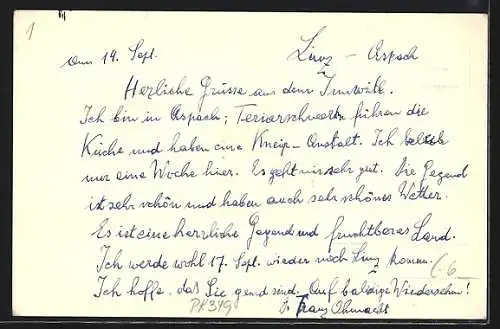 1
am 14. Sept. Linz - Aspach
Herzliche Grüsse aus dem Innviertl.
Ich bin in Aspach; führen die
Küche und haben eine Kneip-Anstalt. Ich bleibe
nur eine Woche hier. Es geht mir sehr gut. Die Gegend
ist sehr schön und haben auch sehr schönes Wetter.
Es ist eine herrliche Gegend und fruchtbares Land.
Ich werde wohl 17. Sept. wieder nach Linz komen.
6.-
Ich hoffe, das Sie gesund sind. Auf baldiges Wiedersehen!
PK349
Franz